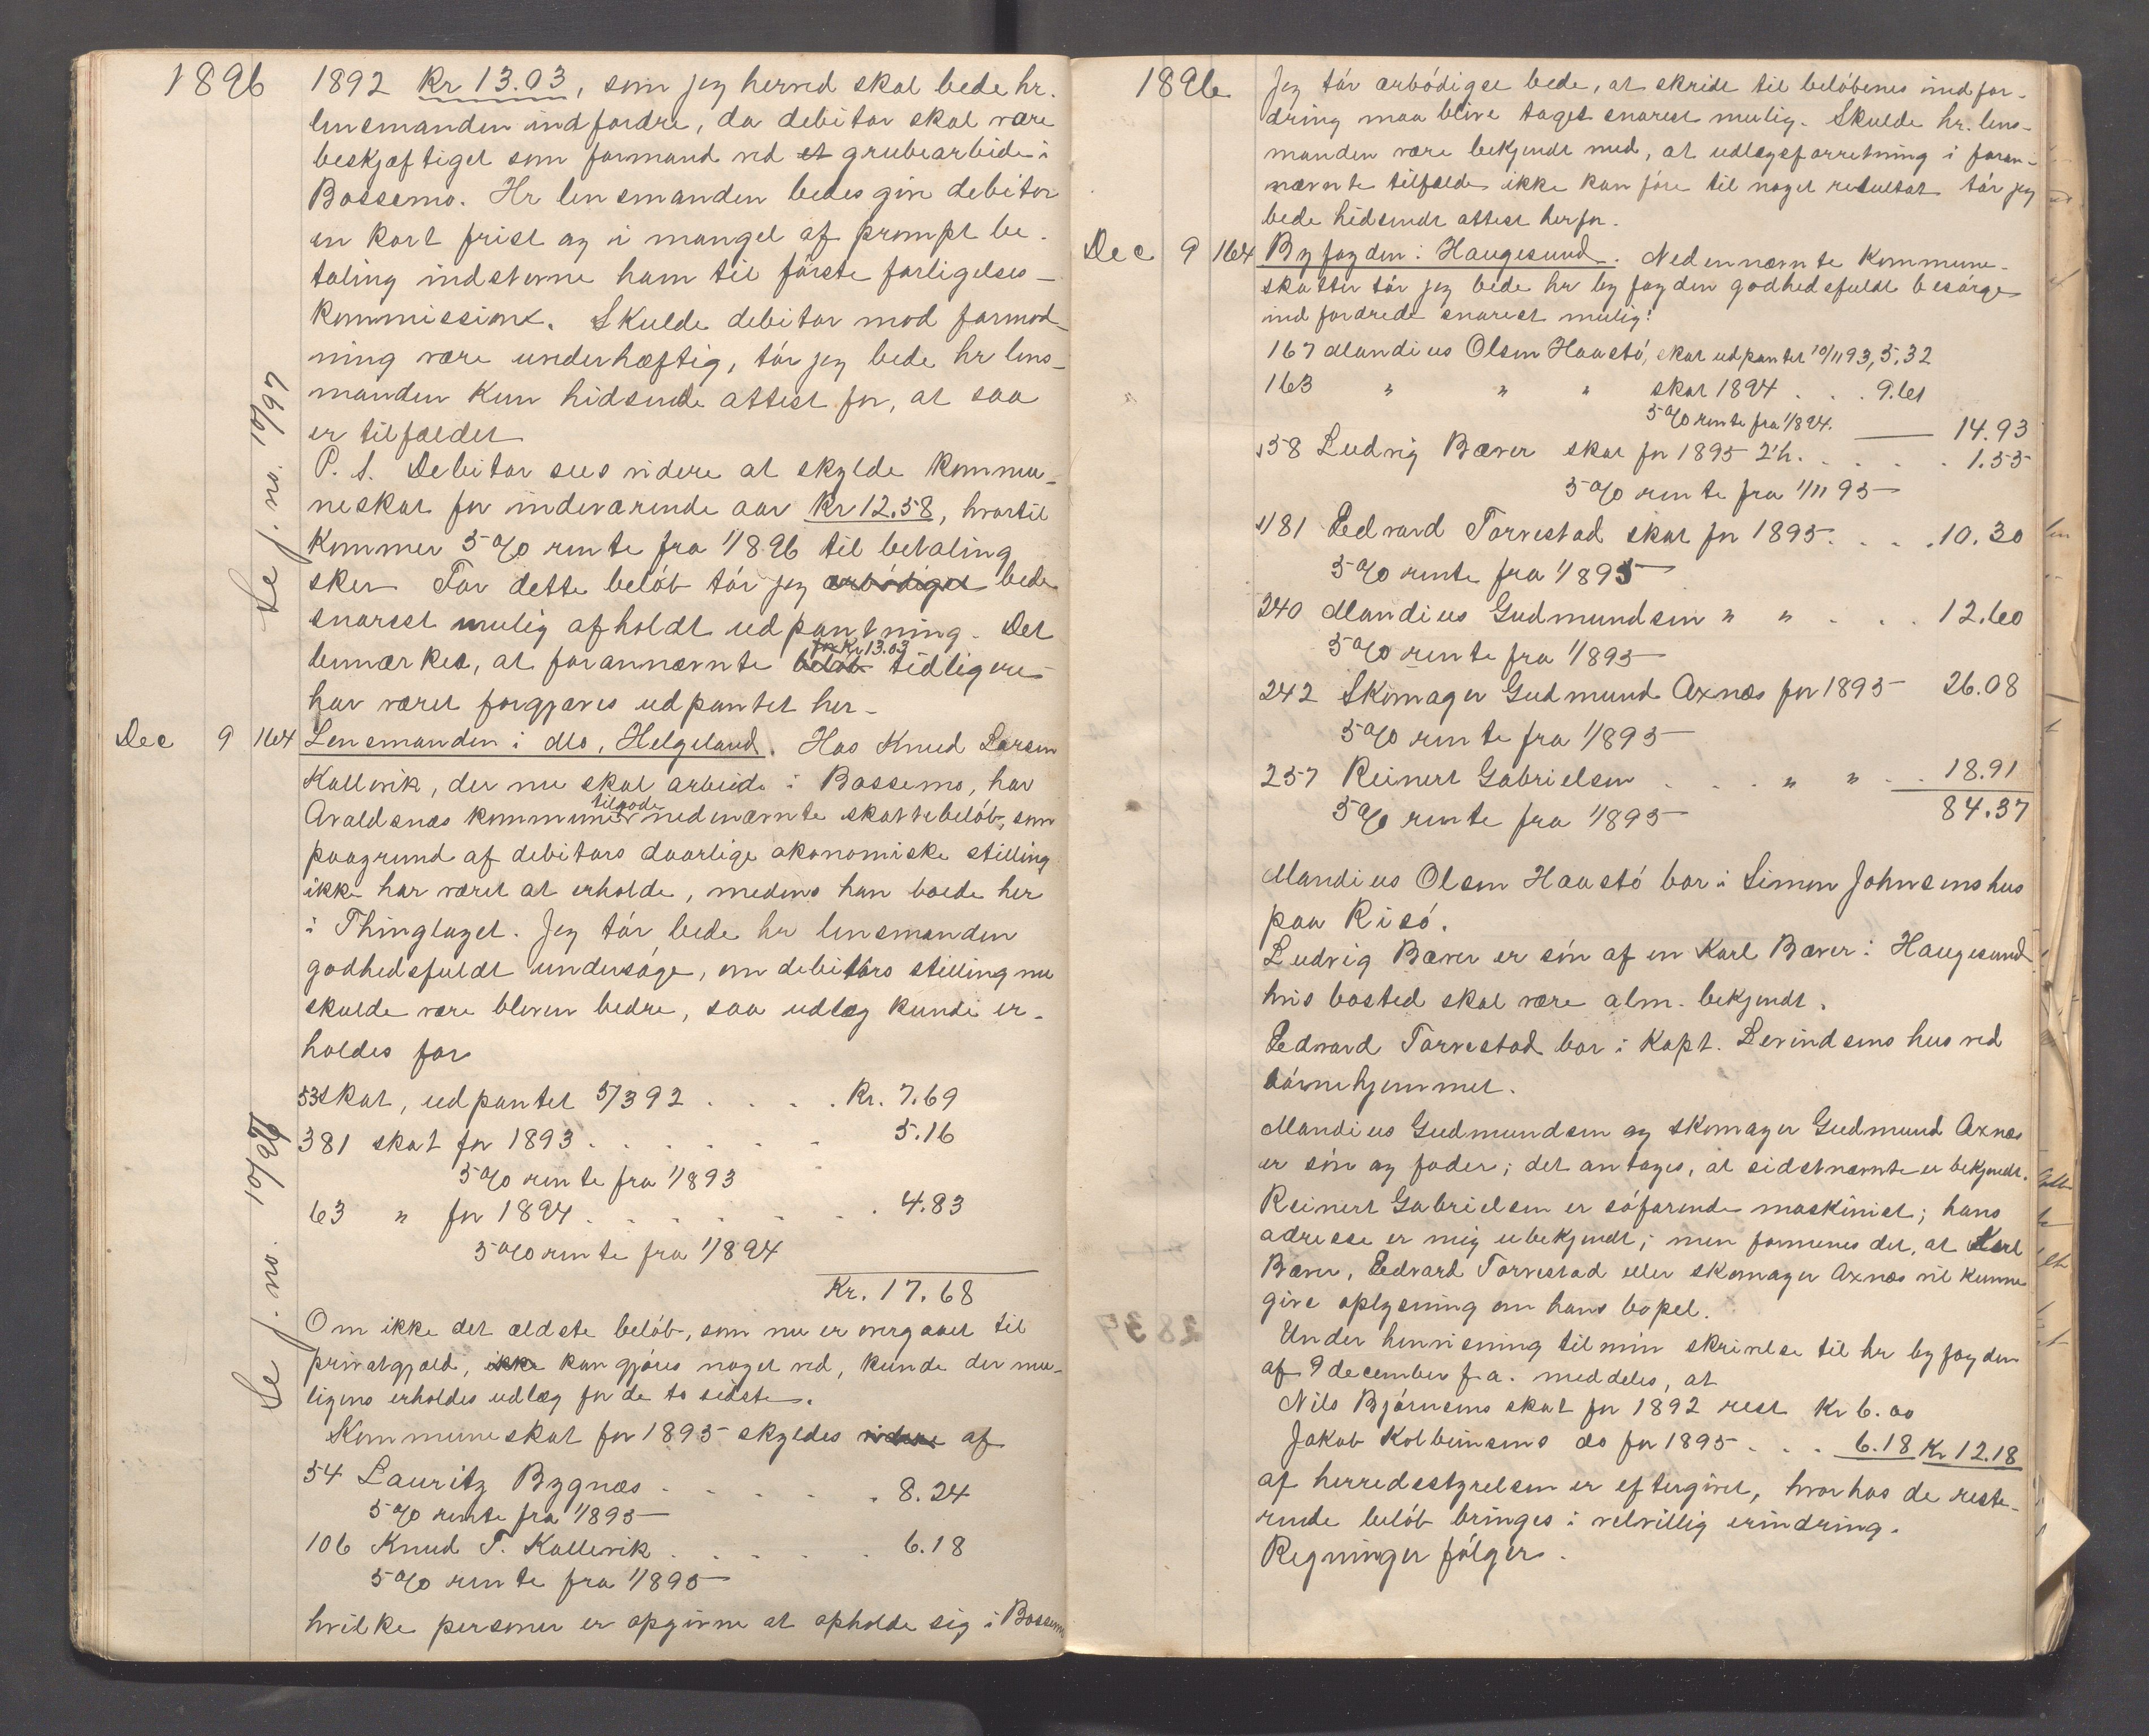 1896
1892 Kr 13.03, som jeg herved skal bede hr.
lensmanden indfordre, da debitor skal være
beskjæftiget som formand ved et grubearbeide i
Bossemo. Hr lensmanden bedes give debitor
en kort frist og i mangel af prompt be-
taling indstevne ham til förste forligelses-
kommission. Skulde debitor mod formod-
ning være uvederhæftig, tór jeg bede hr lens-
manden kun hidsende attest for, at saa
er tilfældet
P. S. Debitor sees videre at skylde kommu-
neskat for indeværende aar Kr 12.58, hvortil
kommer 5% rente fra 1/8 96 til betaling
sker For dette belób tór jeg arbódigst bede
snarest mulig afholdt udpantning. Det
bemærkes, at forannævnte belöb for Kr 13.03 tidligere
har været forgjæves udpantet her-
Se j. no. 10/97
Dec 9 164 Lensmanden i Mo, Helgeland. Hos Knud Larsen
Kallevik, der nu skal arbeide i Bossemo, har
Avaldsnæs kommune tilgode nedennævnte skattebelób, som
paagrund af debitors daarlige økonomiske stilling
ikke har været at erholde, medens han boede her
i Thinglaget. Jeg tór bede hr lensmanden
godhedsfuldt undersóge, om debitors stilling nu
skulde være bleven bedre, saa udlæg kunde er-
holdes for
53 skat, udpantet 5/3 92 . . . . Kr. 7.69
381 skat for 1893 . . . . . . 5.16
5% rente fra 1/8 93
63 " for 1894 . . . . . . . 4.83
5% rente fra 1/8 94
Kr. 17.68
Se j. no. 10/98
Om ikke det ældste belób, som nu er overgaaet til
privatgjæld, ikke kan gjóres noget ved, kunde der mu-
ligens erholdes udlæg for de to sidste.
Kommuneskat for 1895 skyldes videre af
54 Lauritz Bygnæs . . . . . . 8.24
5% rente fra 1/8 95
106 Knud T. Kallevik . . . . . 6.18
5% rente fra 1/8 95
hvilke personer er opgivne at opholde sig i Bossemo
1896
Jeg tór arbódigst bede, at skridt til belóbenes indfor-
dring maa blive taget snarest mulig. Skulde hr. lens-
manden være bekjendt med, at udlægsforretning i foran-
nævnte tilfælde ikke kan fóre til noget resultat tór jeg
bede hidsendt attest herfor.
Dec 9 164 Byfogden i Haugesund. Nedennævnte kommune-
skatter tór jeg bede hr byfogden godhedsfuldt besórge
indfordrede snarest mulig:
167 Mandius Olsen Haastó, skat udpantet 10/11 93, 5.32
163 " " " skat 1894 . . . 9.61
5% rente fra 1/8 94. — 14.93
158 Ludvig Bæver skat for 1895 2'h. . . . . 1.55
5% rente fra 1/11 95
181 Edvard Torvestad skat for 1895. . . . 10.30
5% rente fra 1/8 95
240 Mandius Gudmundsen " " . . . 12.60
5% rente fra 1/8 95
242 Skomager Gudmund Axnæs for 1895 26.08
5% rente fra 1/8 95
257 Reinert Gabrielsen . . . " " . . 18.91
5% rente fra 1/8 95 84.37
Mandius Olsen Haastó bor i Simon Johnsens hus
paa Risó.
Ludvig Bæver er són af en Karl Bæver i Haugesund
hvis bosted skal være alm. bekjendt.
Edvard Torvestad bor i Kapt. Sevindsens hus ved
bórnehjemmet.
Mandius Gudmundsen og skomager Gudmund Axnæs
er són og fader; det antages, at sidstnævnte er bekjendt.
Reinert Gabrielsen er sófarende maskinist; hans
adresse er mig ubekjendt; men formenes det, at Karl
Bæver, Edvard Torvestad eller skomager Axnæs vil kunne
give oplysning om hans bopel.
Under henvisning til min skrivelse til hr byfogden
af 9 december f.a. meddeles, at
Nils Bjórnsens skat for 1892 rest Kr 6.00
Jakob Kolbeinsens do for 1895 . . . 6.18 Kr 12.18
af herredsstyrelsen er eftergivet, hvorhos de reste-
rende belób bringes i velvillig erindring.
Regninger fólger.